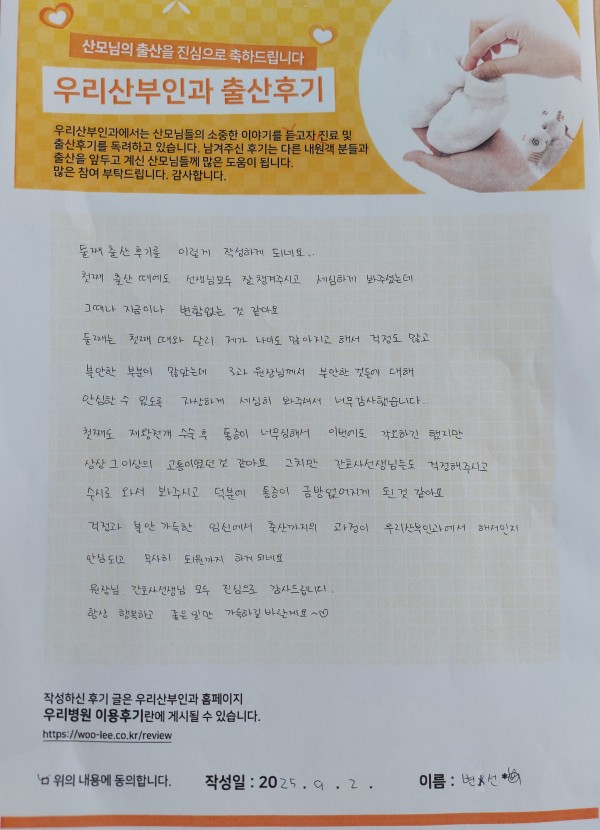 산모님의 출산을 진심으로 축하드립니다
우리산부인과 출산후기
우리산부인과에서는 산모님들의 소중한 이야기를 듣고자 진료 및
출산후기를 독려하고 있습니다. 남겨주신 후기는 다른 내원객 분들과
출산을 앞두고 계신 산모님들께 많은 도움이 됩니다.
많은 참여 부탁드립니다. 감사합니다.
둘째 출산 후기를 이렇게 작성하게 되네요..
첫째 출산 때에도 선생님모두 잘 챙겨주시고 세심하게 봐주셨는데
그때나 지금이나 변함없는 것 같아요
둘째는 첫째 때와 달리 제가 나이도 많아지고 해서 걱정도 많고
불안한 부분이 많았는데 3과 원장님께서 불안한 것들에 대해
안심할 수 있도록 자상하게 세심히 봐주셔서 너무감사했습니다..
첫째도 제왕절개 수술 후 통증이 너무심해서 이번에도 각오하긴 했지만
상상 그 이상의 고통이였던 것 같아요 그치만 간호사선생님들도 걱정해주시고
수시로 와서 봐주시고 덕분에 통증이 금방없어지게 된 것 같아요
걱정과 불안 가득한 임신에서 출산까지의 과정이 우리산부인과에서 해서인지
안심되고 무사히 퇴원까지 하게 되네요
원장님 간호사선생님 모두 진심으로 감사드립니다.
항상 행복하고 좋은 일만 가득하길 바랄게요~♡
작성하신 후기 글은 우리산부인과 홈페이지
우리병원 이용후기란에 게시될 수 있습니다.
https://woo-lee.co.kr/review
위의 내용에 동의합니다. 작성일 : 2025. 9. 2. 이름 : 변 선